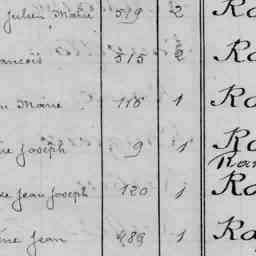 Julien Marie 519 2 Ra
ancois 515 2 Ra
Marie 116 1 Ra
Joseph 9 1 Ra
Jean Joseph 120 1 Ra
Jean 489 1 Ra